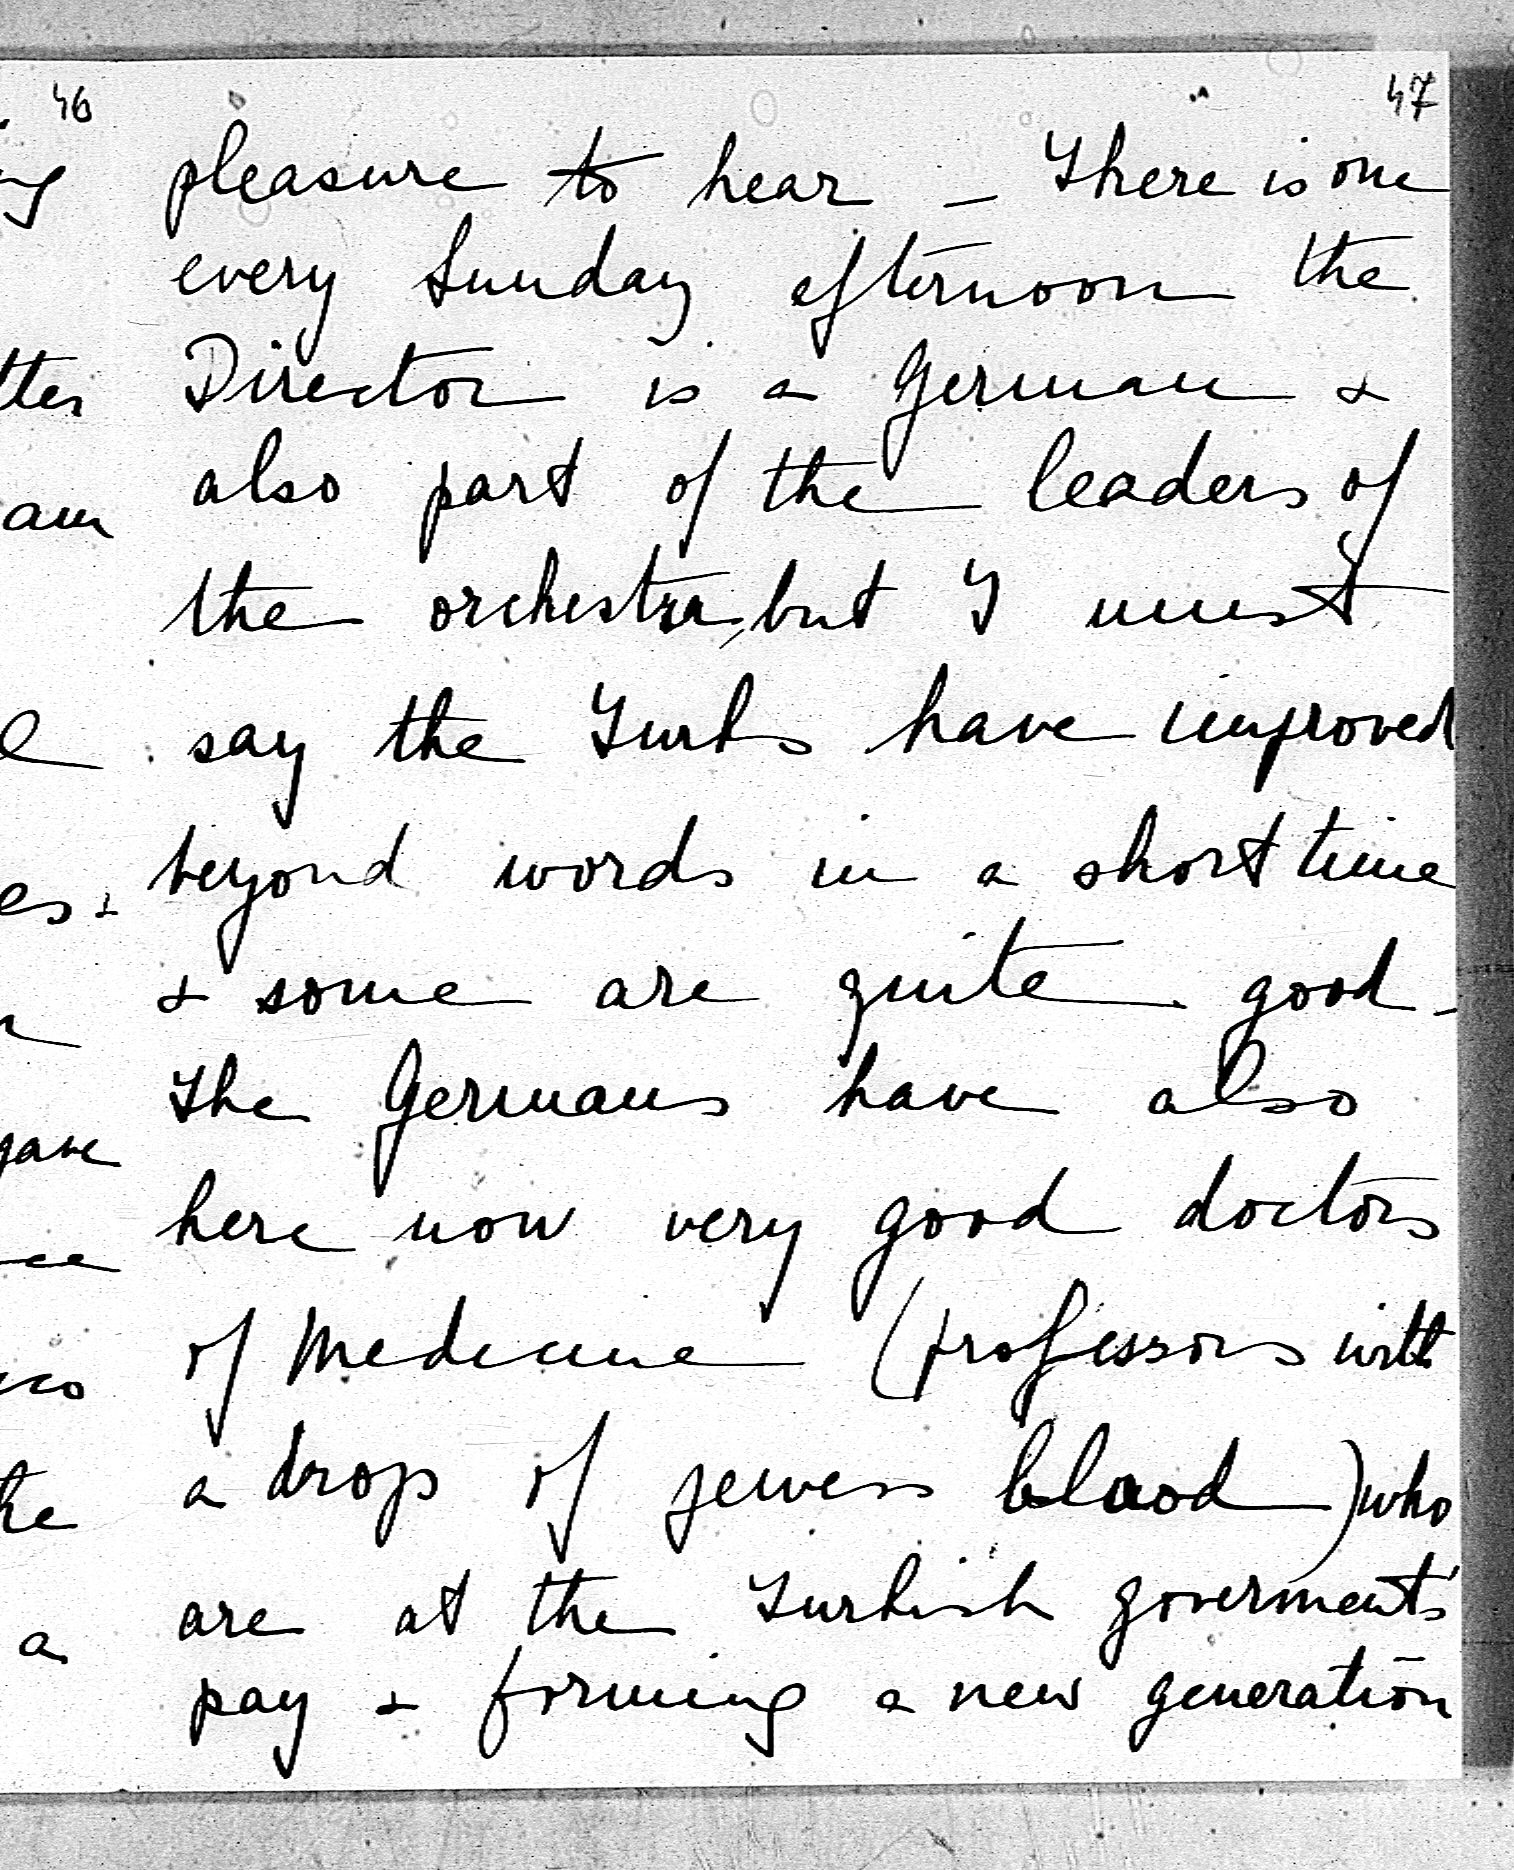 46
47
pleasure to hear _ There is one
every Sunday afternoon the
Director is a German &
also part of the leaders of
the orchestra, but I must
say the Turks have improved
beyond words in a short time
& some are quite good _
The Germans have also
here now very good doctors
of Medicine (professors with
a drop of jewess blood) who
are at the Turkish goverments'
pay & forming a new generation
am
es &
gave
a